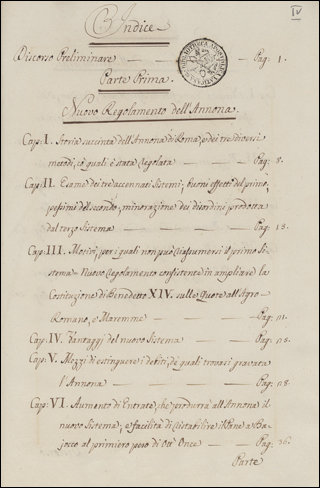 IV
Indice
Discorso Preliminare — — — Pag. 1.
Parte Prima.
Nuovo Regolamento dell'Annona.
Cap: I. Storia succinta dell'Annona di Roma, e dei tre diversi
metodi, co' quali è stata regolata — — Pag. 8.
Cap: II. Esame dei tre accennati Sistemi; buoni effetti del primo,
pessimi del secondo; minorazione dei disordini prodotta
dal terzo Sistema — — — Pag. 13.
Cap: III. Motivi, per i quali non può riassumersi il primo Si-
stema – Nuovo regolamento consistente in ampliare la
Costituzione di Benedetto XIV. sulle Quote all'Agro
Romano, e Maremme — — Pag.
Cap: IV. Vantaggj del nuovo Sistema — — Pag.
Cap: V. Mezzi di estinguere i debiti, de' quali trovasi gravata
l'Annona — — — — Pag.
Cap: VI. Aumento di Entrate, che produrrà all'Annona il
nuovo Sistema, e facilità di ristabilire il Pane a Ba-
jocco al primiero peso di Ott' Once — — Pag.
Parte